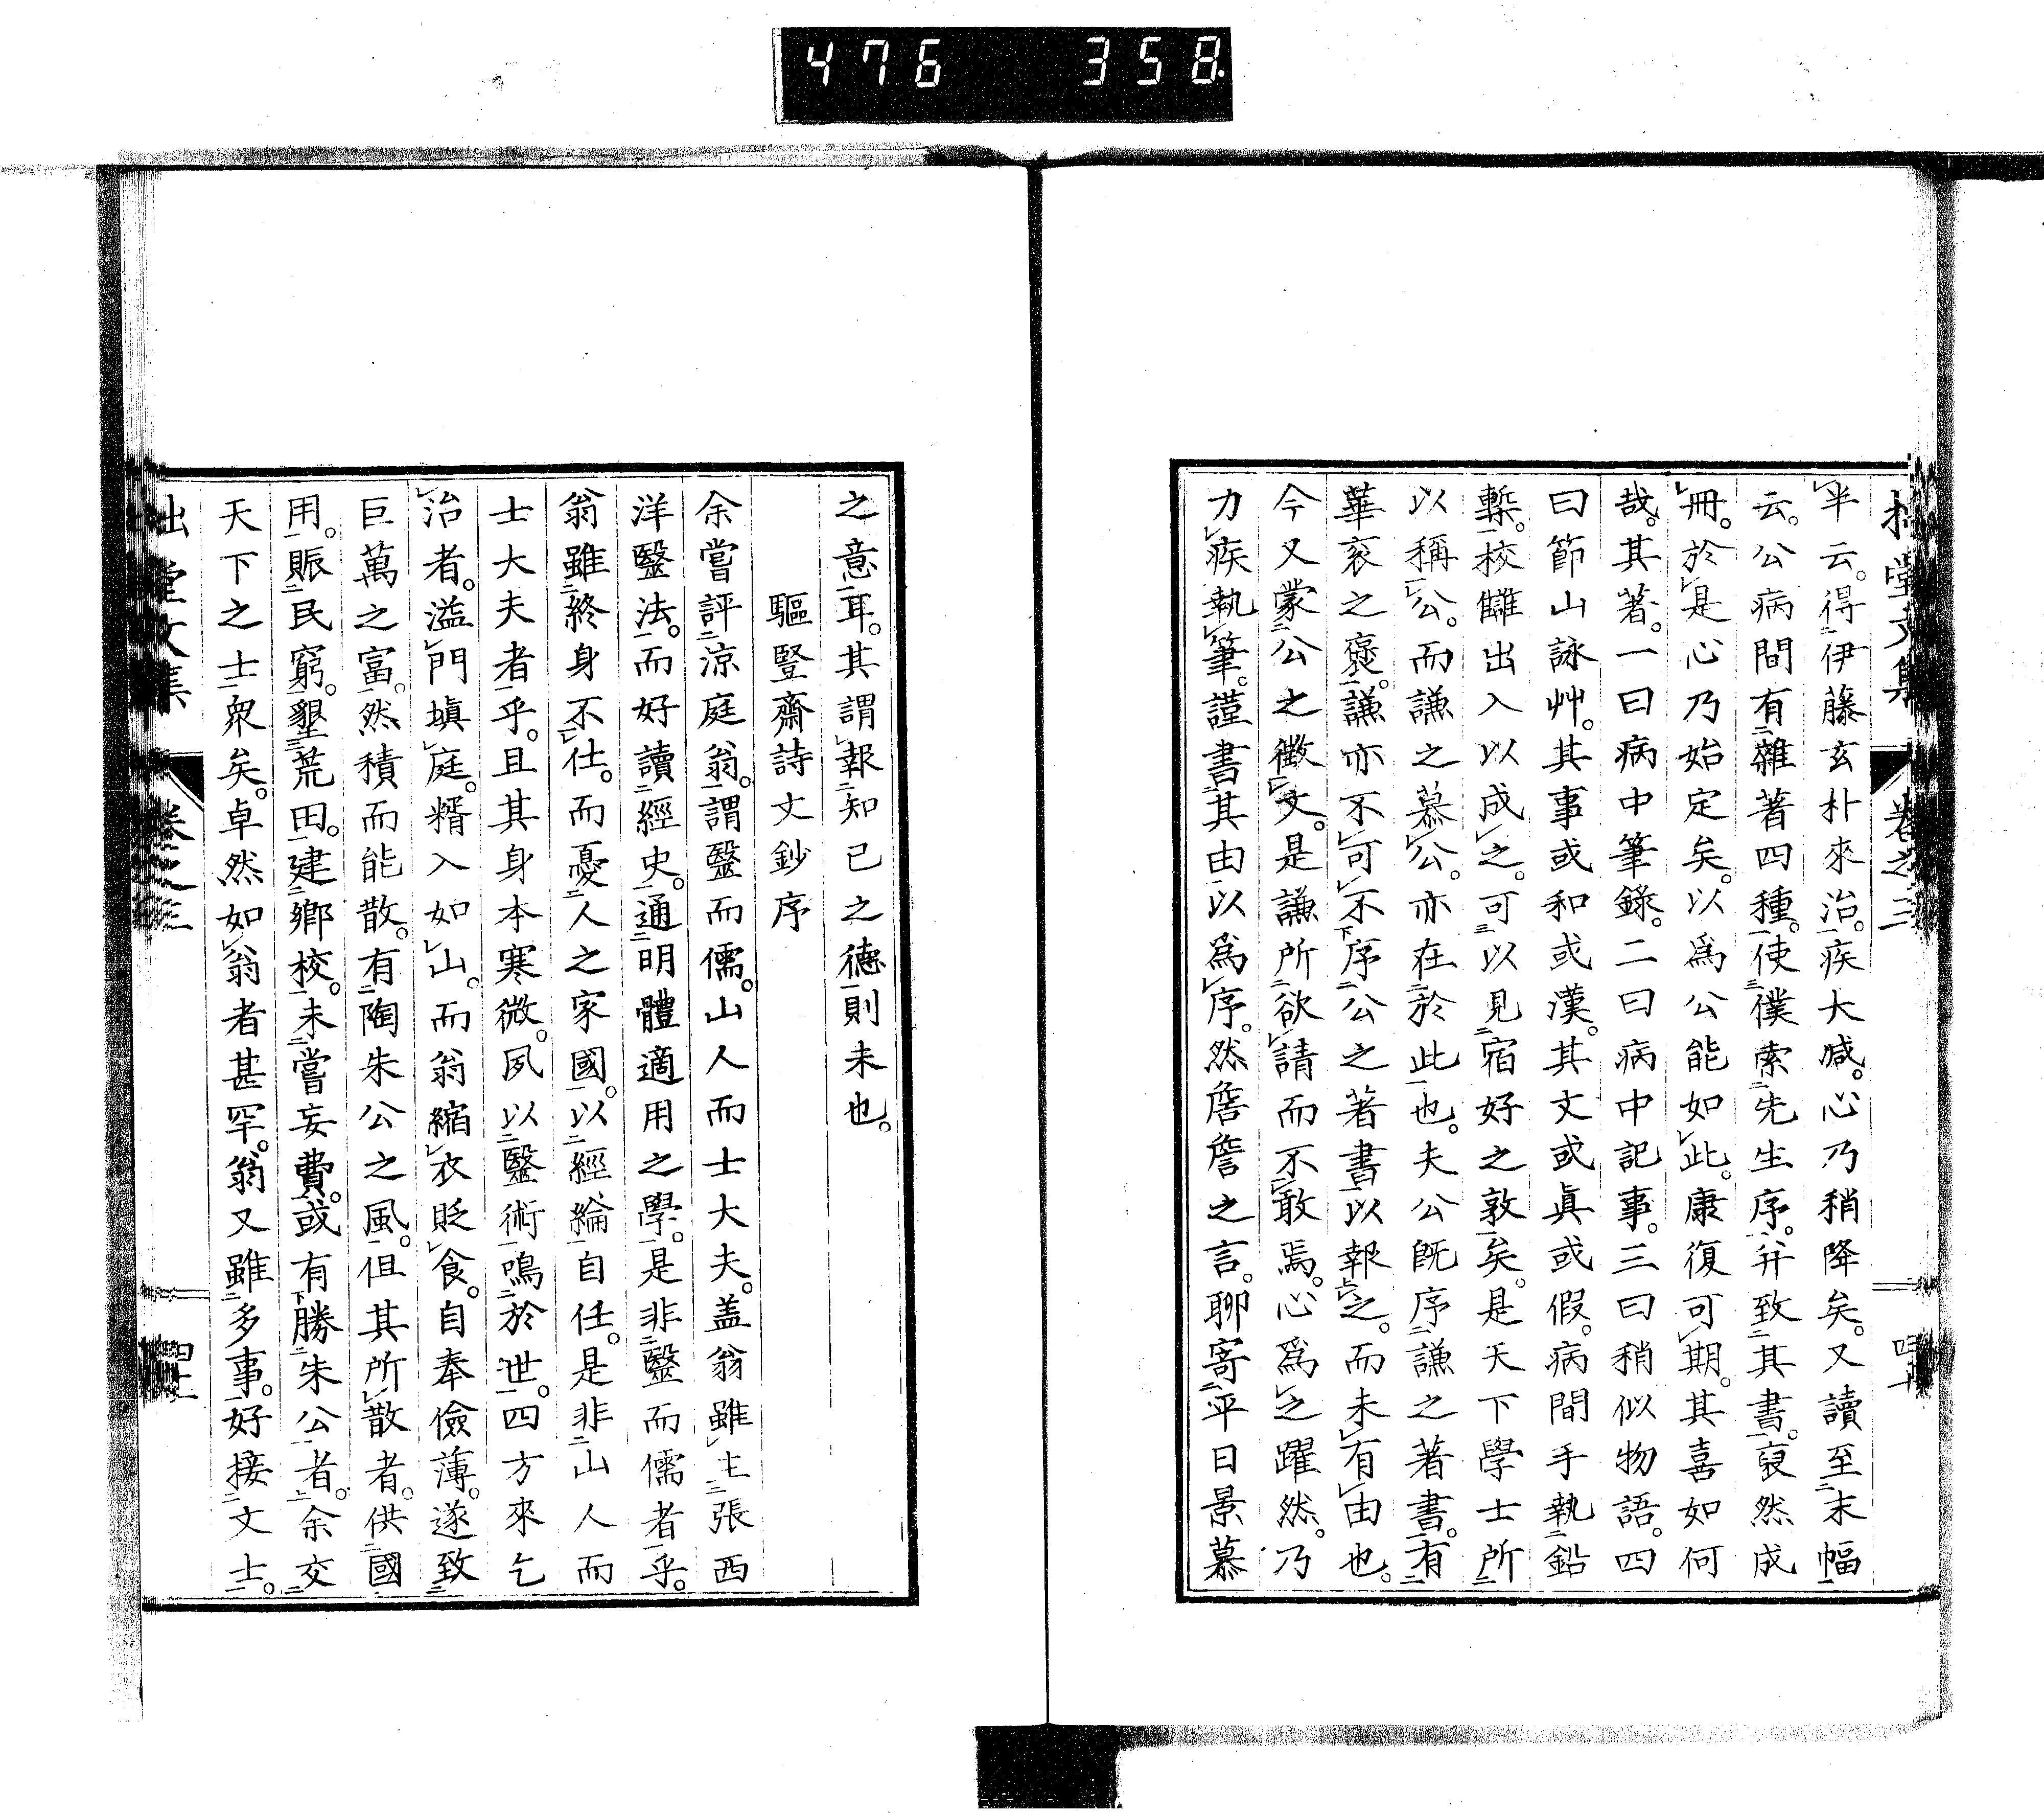 476 358
半云。得伊藤玄朴來治。疾大減。心乃稍降矣。又讀至末幅
云。公病間有雜著四種。使僕索先生序。幷致其書。裒然成
冊。於是心乃始定矣。以爲公能如此。康復可期。其喜如何
哉。其著。一曰病中筆錄。二曰病中記事。三曰稍似物語。四
曰節山詠艸。其事或和或漢。其文或眞或假。病間手執鉛
槧。校讎出入以成之。可以見宿好之敦矣。是天下學士所
以稱公。而謙之慕公。亦在於此也。夫公旣序謙之著書。有
華袞之褒。謙亦不可不序公之著書以報之。而未有由也。
今又蒙公之徵文。是謙所欲請而不敢焉。心爲之躍然。乃
力疾執筆。謹書其由以爲序。然詹詹之言。聊寄平日景慕
之意耳。其謂報知己之德則未也。
驅豎齋詩文鈔序
余嘗評涼庭翁。謂毉而儒。山人而士大夫。盖翁雖主張西
洋毉法。而好讀經史。通明體適用之學。是非毉而儒者乎。
翁雖終身不仕。而憂人之家國。以經綸自任。是非山人而
士大夫者乎。且其身本寒微。夙以毉術鳴於世。四方來乞
治者。溢門塡庭。糈入如山。而翁縮衣貶食。自奉儉薄。遂致
巨萬之富。然積而能散。有陶朱公之風。但其所散者。供國
用。賑民窮。墾荒田。建鄕校。未嘗妄費。或有勝朱公者。余交
天下之士衆矣。卓然如翁者甚罕。翁又雖多事。好接文士。
堂文集 卷之三